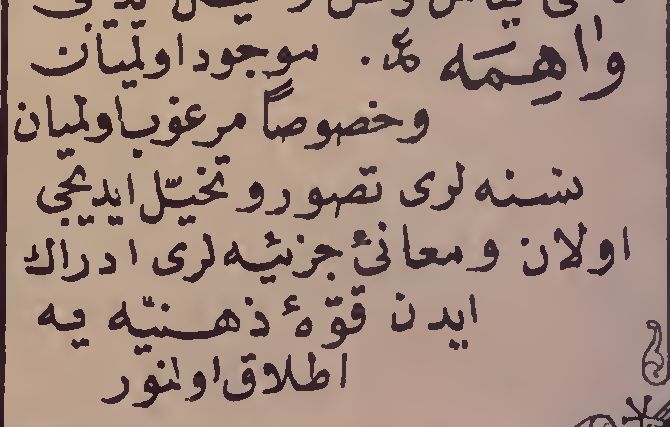 واهِمَه ع. موجود اولميان
وخصوصاً مرغوب اولميان
شنه لرى تصور و تخيّل ايديجى
اولان ومعانئ جزئيه لرى ادراك
ايدن قوّهٔ ذهنيّه يه
اطلاق اولنور